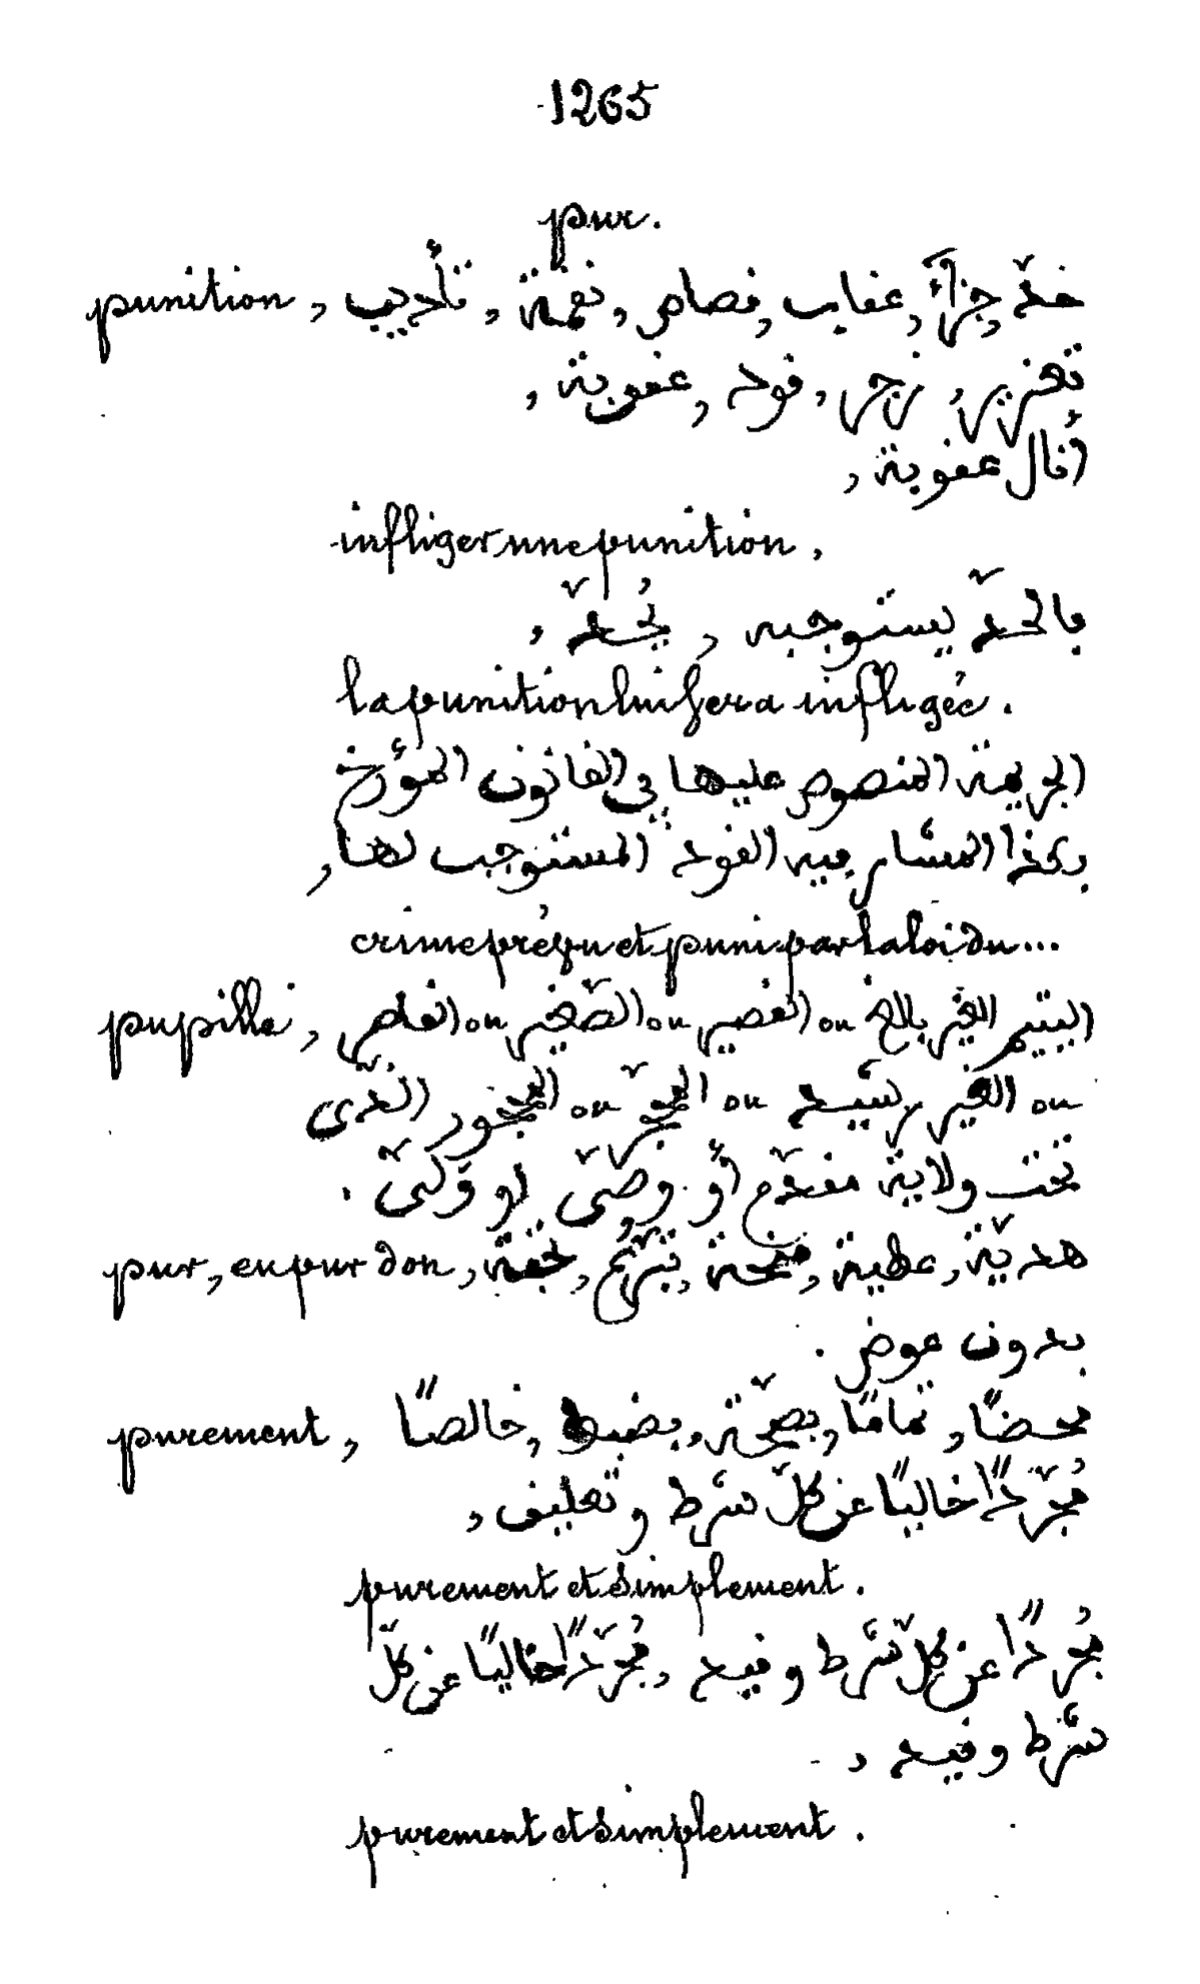 1265
pur.
punition, حدّ, جزاءً, عقاب, قصاص, نقمة, تأديب,
تعزير, زجر, قود, عقوبة,
أقال عقوبة,
infliger une punition.
بالحدّ يستوجبه, يُحدّ,
la punition lui sera infligée.
الجريمة المنصوص عليها في القانون المؤرخ
بكذا المشار فيه القود المستوجب لها,
crime prévu et puni par la loi du...
pupille, اليتيم الغير بالغ ou القصير ou الصّغير ou القاصر
ou الغير رشيد ou المحجّر ou المحجور الّذى
تحت ولاية مقدّم أو وصّى او ولىّ.
pur, en pur don, هديّة, عطية, منحة, تبرّع, تحفة,
بدون عوض.
purement, محضًا, تمامًا, بصحّة, بضبط, خالصًا
مُجرّدًا خاليًا عن كلّ شرط وتعليق,
purement et simplement.
مُجرّدًا عن كلّ شرط وقيد, مُجرّدًا خاليًا عن كلّ
شرط وقيد,
purement et simplement.